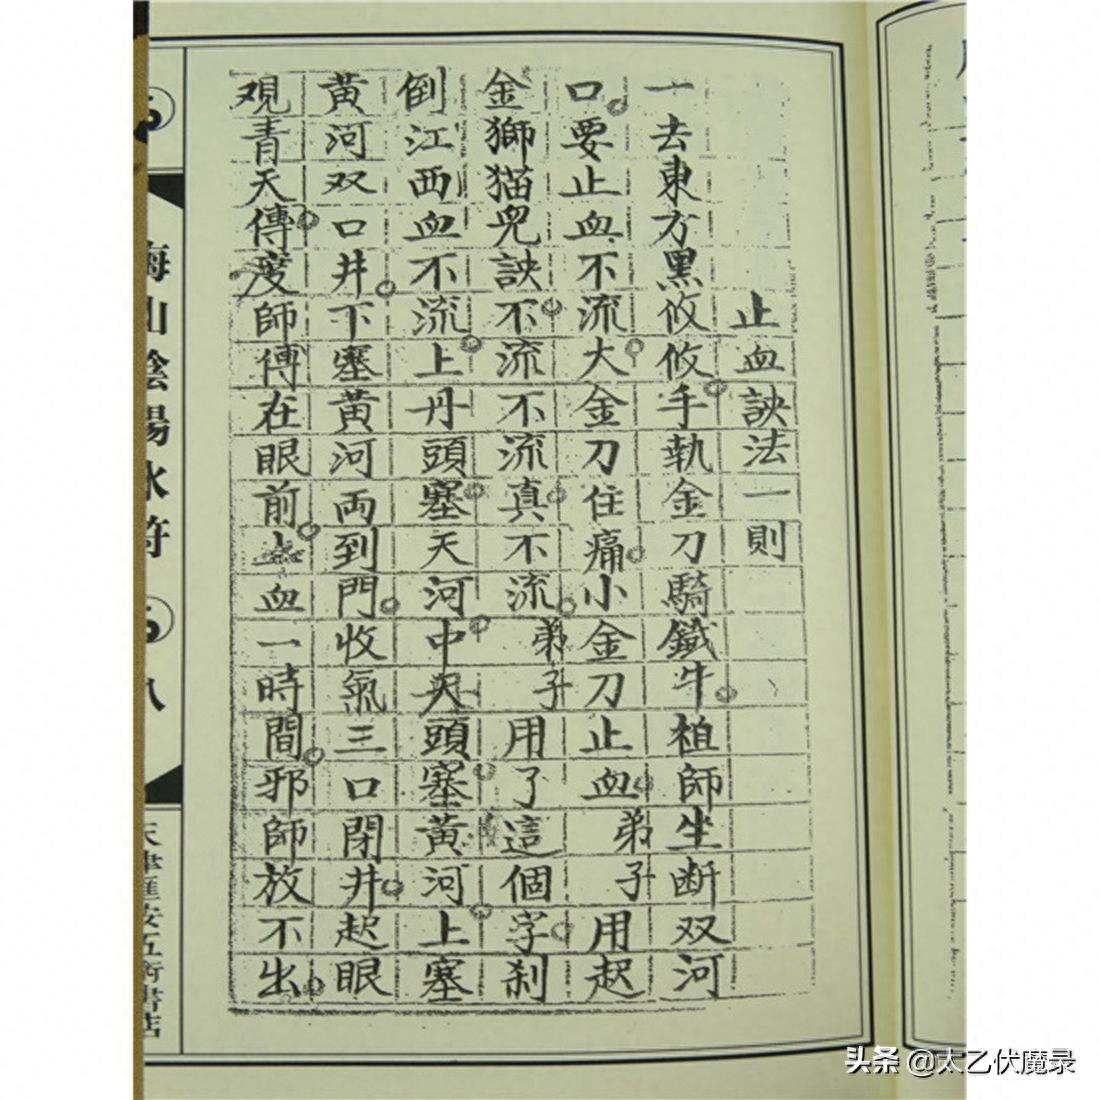 止血訣法一則
一去東方黑攸攸手執金刀騎鐵牛祖師坐断双河
口要止血不流大金刀住痛小金刀止血弟子用起
金獅猫兒訣不流不流真不流弟子用了這個字刹
倒江西血不流上丹頭塞天河中頭塞黃河上塞
黃河双口井下塞黃河両到門收氣三口閉井起眼
观青天傳度師傅在眼前血一時間邪師放不出
梅山陰陽水符
八
天津匯安五術書店
头条 @太乙伏魔录